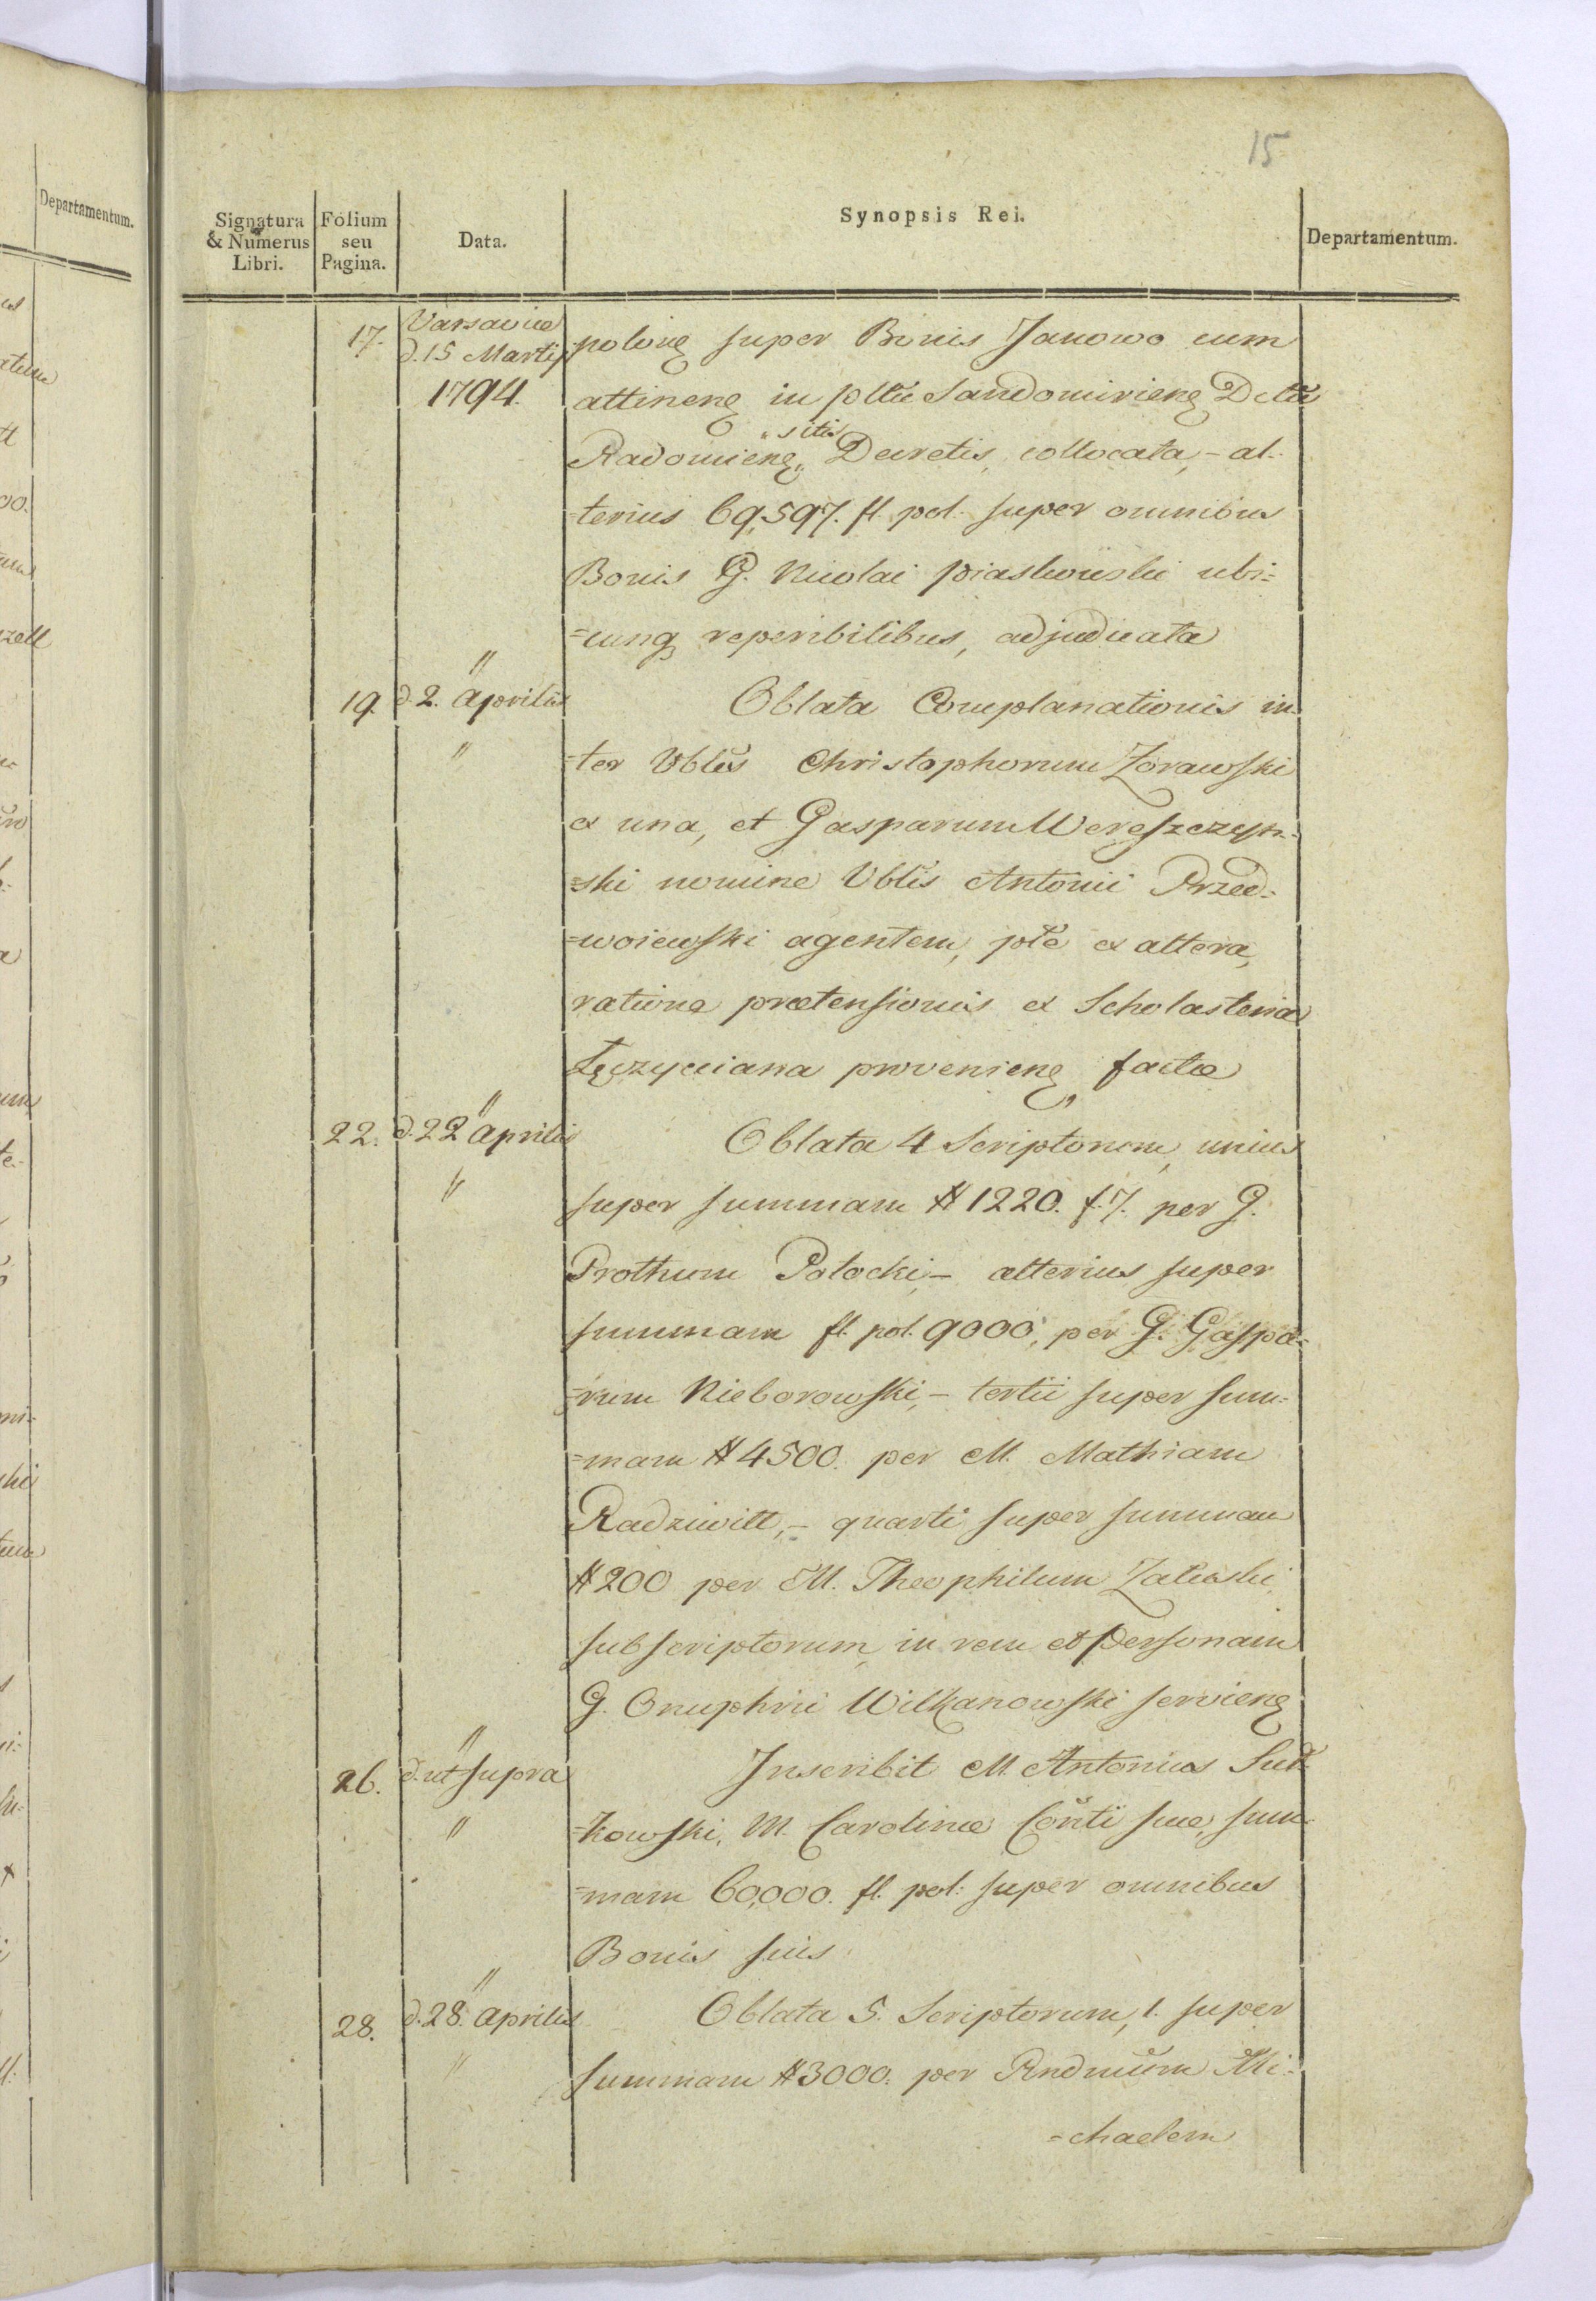 15
Departamentum.
Signatura & Numerus Libri. Folium seu Pagina. Data. Synopsis Rei. Departamentum.
17. Varsaviæ d. 15 Martij 1794. polonę super Bonis Janowo cum
attinenę in pltu Sandomirienę Dctu
Radomienę „sitis„ Decretis, collocata, – al-
terius 69,597. fl. pol. super omnibus
Bonis G. Nicolai Piaskowski ubi=
=cunqȝ reperibilibus, adjudicata
19. " d. 2. Aprilis " Oblata Complanationis in-
=ter Vbles Christophorum Zorawski
ex una, et Gasparum Wereszczyn-
=ski nomine Vblis Antonii Przed=
=woiewski agentem, pte ex altera,
ratione prætensionis ex Scholasteria
Łęczyciana provenienę factæ
22. " d. 22 Aprilis " Oblata 4 Scriptorum, unius
super summam # 1220. f. 7. per G.
Prothum Potocki, – alterius super
summam fl. pol. 9000, per G. Gaspa=
=rum Nieborowski, – tertii super sum=
=mam # 4500. per M. Mathiam
Radziwill, – quarti super summam
# 200 per M. Theophilum Zaluski
subscriptorum, in rem et personam
G. Onuphrii Wilkanowski servienę
26. " d. ut supra " Inscribit M. Antonius Suł-
=kowski, M. Carolinæ Conti suæ, sum-
=mam 60,000. fl. pol: super omnibus
Bonis suis.
28. " d. 28. Aprilis " Oblata 5. Scriptorum, 1. super
summam # 3000. per Rndmum Mi=
=chaelem